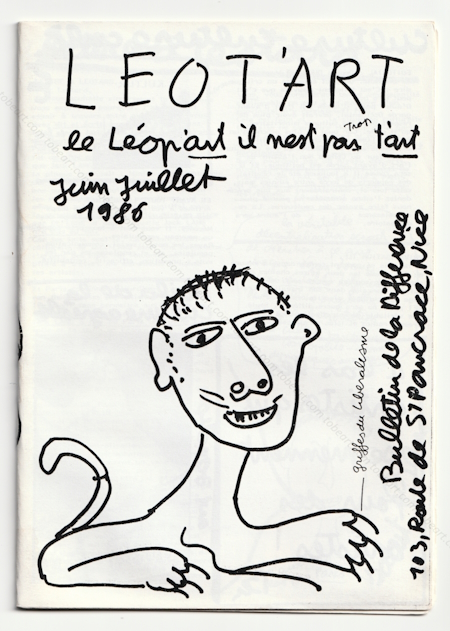 LEOT'ART
le Léop'art il n'est pas trop t'art
Juin Juillet
1986
griffes du libéralisme
Bulletin de la Différence
103, Route de St Pancrace, Nice